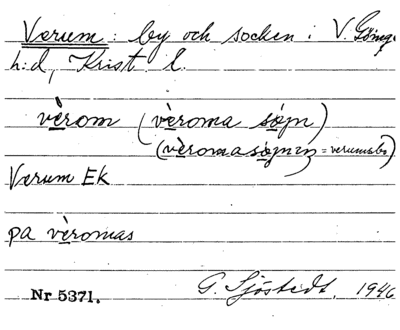 Verum: by och socken i V. Göinge
h:d, Krist. l.
vèrom (vèroma sóɲn)
(vèromasoɲnɪn = verumsbo)
Verum Ek
pa vèromas
Nr 5371. G. Sjöstedt, 1946